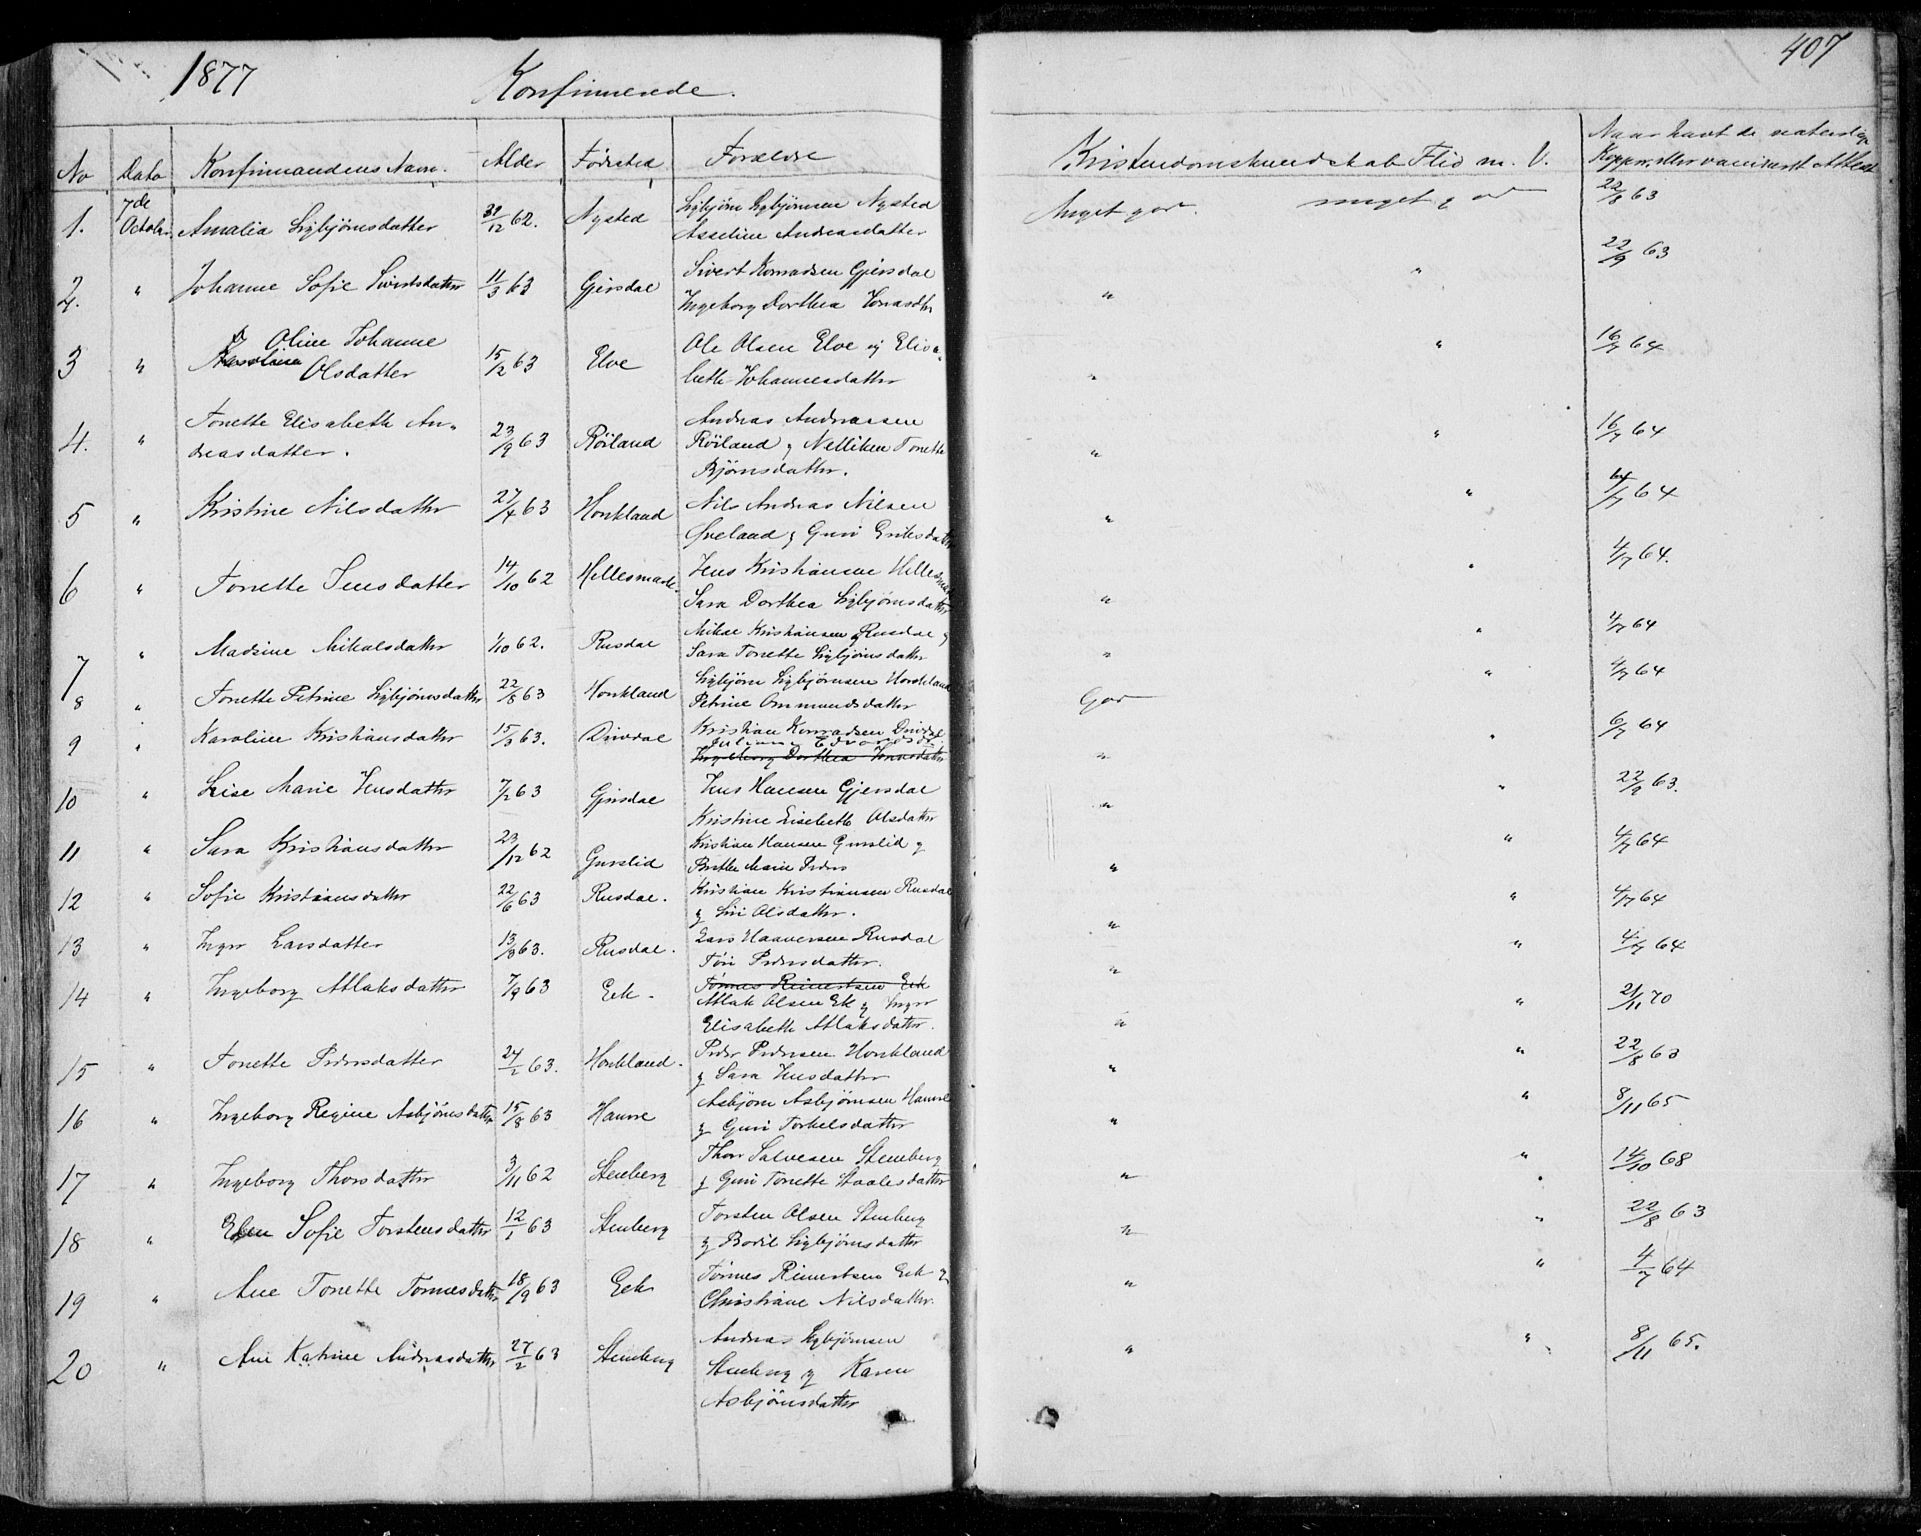 1877 Konfirmerede. 407
No Dato Konfirmandens Navn. Alder Fødested Forældre Kristendomskundskab Flid m. V. Naar havt de naturlige Kopper eller vaccineret Attest
1. 7de Octobr Amalia Sigbjörnsdatter 31/12 62. Nysted Sigbjörn Sigbjörnsen Nysted Meget god. meget god 22/8 63
Asseline Andreasdatter
2. " Johanne Sofie Sivertsdatter 11/3 63 Gjersdal Sivert Konradsen Gjersdal " " 22/9 63
Ingeborg Dorthea Jonasdtr
3 " Oline Johanne 15/2 63 Elve Ole Olsen Elve og Elisa- " " 16/7 64
Olsdatter beth Johannesdatter
4. " Tonette Elisabeth An- 23/9 63 Röiland Andreas Andreassen " " 16/7 64
dreasdatter. Röiland og Nelliken Tonette
Björnsdatter.
5 " Kristine Nilsdatter 27/4 63 Honkland Nils Andreas Nilsen " " 4/7 64
Öveland og Guri Eriksdatter
6 " Tonette Jensdatter 14/10 62 Hellesmark. Jens Kristiansen Hellesmark " " 4/7 64.
Sara Dorthea Sigbjörnsdatter
7 " Madsine Mikalsdatter 1/10 62. Rusdal Mikal Kristiansen Rusdal og " " 4/7 64
Sara Tonette Sigbjörnsdatter
8 " Tonette Petrine Sigbjörnsdatter 22/8 63 Honkland Sigbjörn Sigbjörnsen Honkland God " 4/7 64
Petrine Ommundsdatter
9 " Karoline Kristiansdatter 15/3 63. Divdal Kristian Konradsen Divdal " " 6/7 64
Juliane Edvardsdtr
Ingeborg Dorthea Jonasdatter
10 " Leise Marie Jensdatter 7/2 63 Gjersdal Jens Hansen Gjersdal " " 22/9 63.
Kristine Lisebeth Olsdatter
11 " Sara Kristiansdatter 23/12 62 Gurslid Kristian Hansen Gurslid og " " 4/7 64
Berthe Marie Peders
12 " Sofie Kristiansdatter 22/6 63 Rusdal. Kristian Kristiansen Rusdal " " 4/7 64
og Siri Olsdatter.
13 " Inger Larsdatter 13/3 63. Rusdal. Lars Haaversen Rusdal " " 4/7 64
Töri Pedersdatter.
14 " Ingeborg Atlaksdatter 7/9 63 Eek. Tönnes Reinertsen Eek " " 21/11 70
Atlak Olsen Ek og Inger
Elisabeth Atlaksdatter.
15 " Tonette Pedersdatter 24/2 63. Honkland. Peder Pedersen Honkland " " 22/8 63
og Sara Jensdatter
16 " Ingeborg Regine Asbjörnsdatter 15/8 63 Hamre Asbjörn Asbjörnsen Hamre " " 8/11 65
og Guri Torkelsdatter
17 " Ingeborg Thorsdatter 3/11 62 Stenberg Thor Salvesen Stenberg " " 14/10 68
og Guri Tonette Staalesdatter
18 " Elen Sofie Torstensdatter 12/1 63 Stenberg Torsten Olsen Stenberg " " 22/8 63
og Boril Sigbjörnsdatter
19 " Ane Tonette Tønnesdatter 18/9 63 Eek Tönnes Reinertsen Eek og " " 4/7 64
Christiane Nilsdatter.
20 " Ane Katrine Andreasdatter 27/2 63 Stenberg Andreas Sigbjörnsen " " 8/11 65.
Stenberg og Karen
Asbjörnsdatter